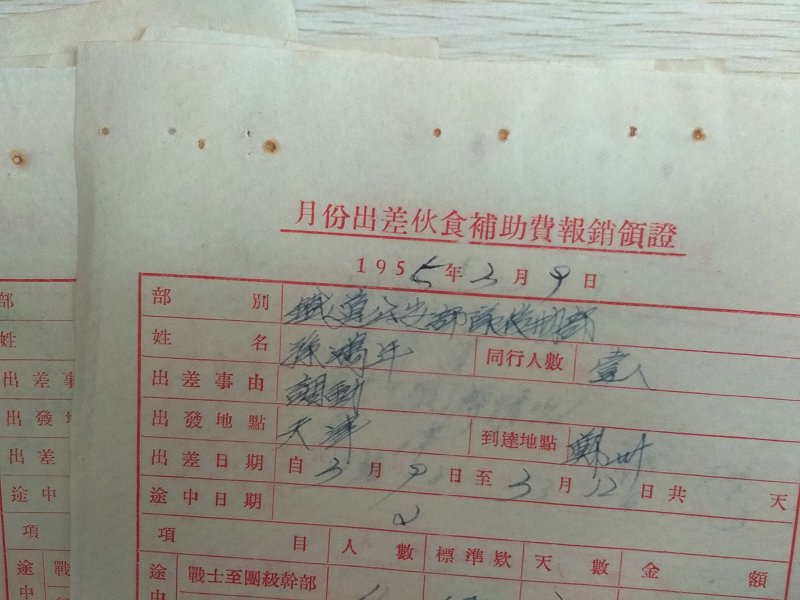 月份出差伙食補助費報銷領證
1955年3月9日
部別 鐵道公安部隊後勤部
姓名 孫鴻年 同行人數 壹人
出差事由 調動
出發地點 天津 到達地點 鄭州
出差日期 自3月9日至3月12日共 天
途中日期 2
項目 人數 標準欵 天數 金額
途中 戰士至團級幹部
部
姓
出差事
出發地
出差
途中
項
途中 戰